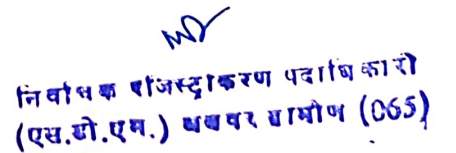 निर्वाचक रजिस्ट्रीकरण पदाधिकारी
(एस.डी.एम.) अलवर ग्रामीण (065)